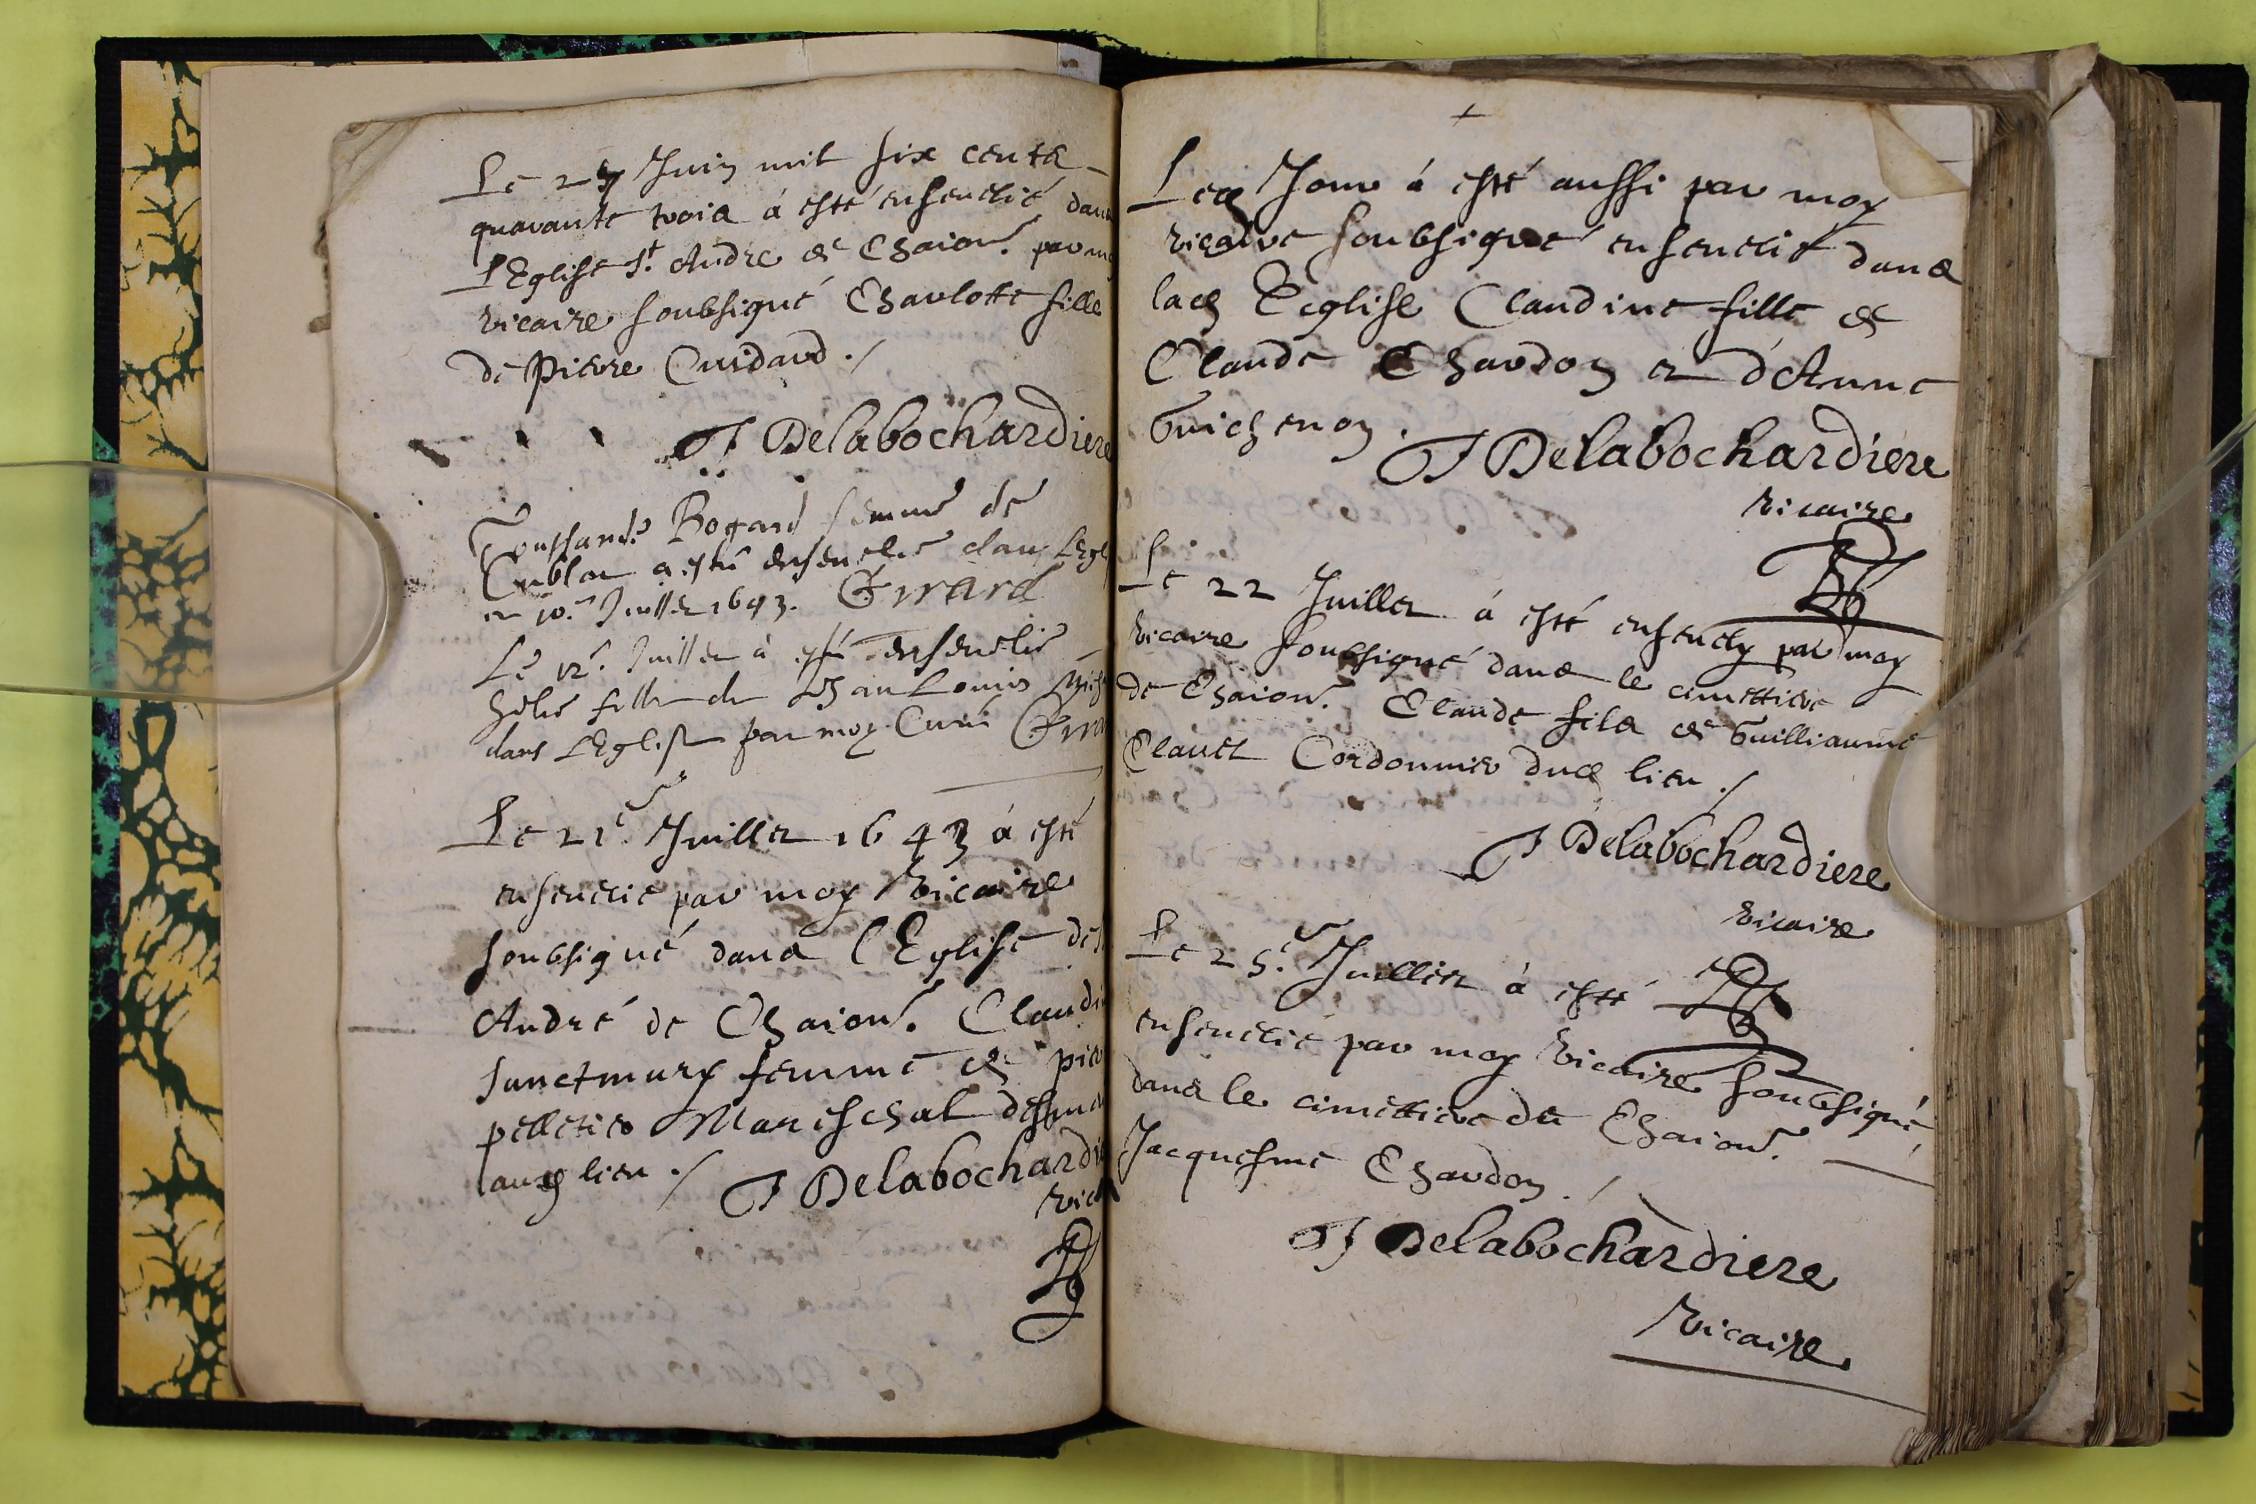 Le 25 Juin mil six cents
quarante trois à esté ensevelié dans
l'Eglise St. Andre de Chaion. par moy
vicaire soubsigné Charlotte fille
de Pierre Cuidard ./
J Delabochardiere
Bogard femme de
a esté ensevelie dans L'Egl
en 10.e Juillet 1643. Girard
Le 12e. Juillet à esté ensevelie
fille de Jean Louis
dans L'Eglise par moy Curé Girar
Le 21e. Juillet 1643 à esté
ensevelie par moy Vicaire
soubsigné dans l'Eglise de S
André de Chaion. Claudi
sanctmury femme de pier
pelletier Mareschal
aud lieu ./ J Delabochardie
vica
Led Jour à esté aussi par moy
vicaire soubsigné ensevelie dans
lad Eeglise Claudine fille de
Claude Chardon et d'Anne
Guichenon.
J Delabochardiere
vicaire
Le 22 Juillet à esté ensevely par moy
vicaire soubsigné dans le cimettiere
de Chaion. Claude fils de Guilliaume
Clauet Cordonnier dud lieu ./
J Delabochardiere
vicaire
Le 25e. Juillet à esté
ensevelié par moy Vicaire soubsigné
dans le cimettiere de Chaion.
Jacquesme Chardon ./
J Delabochardiere
Vicaire